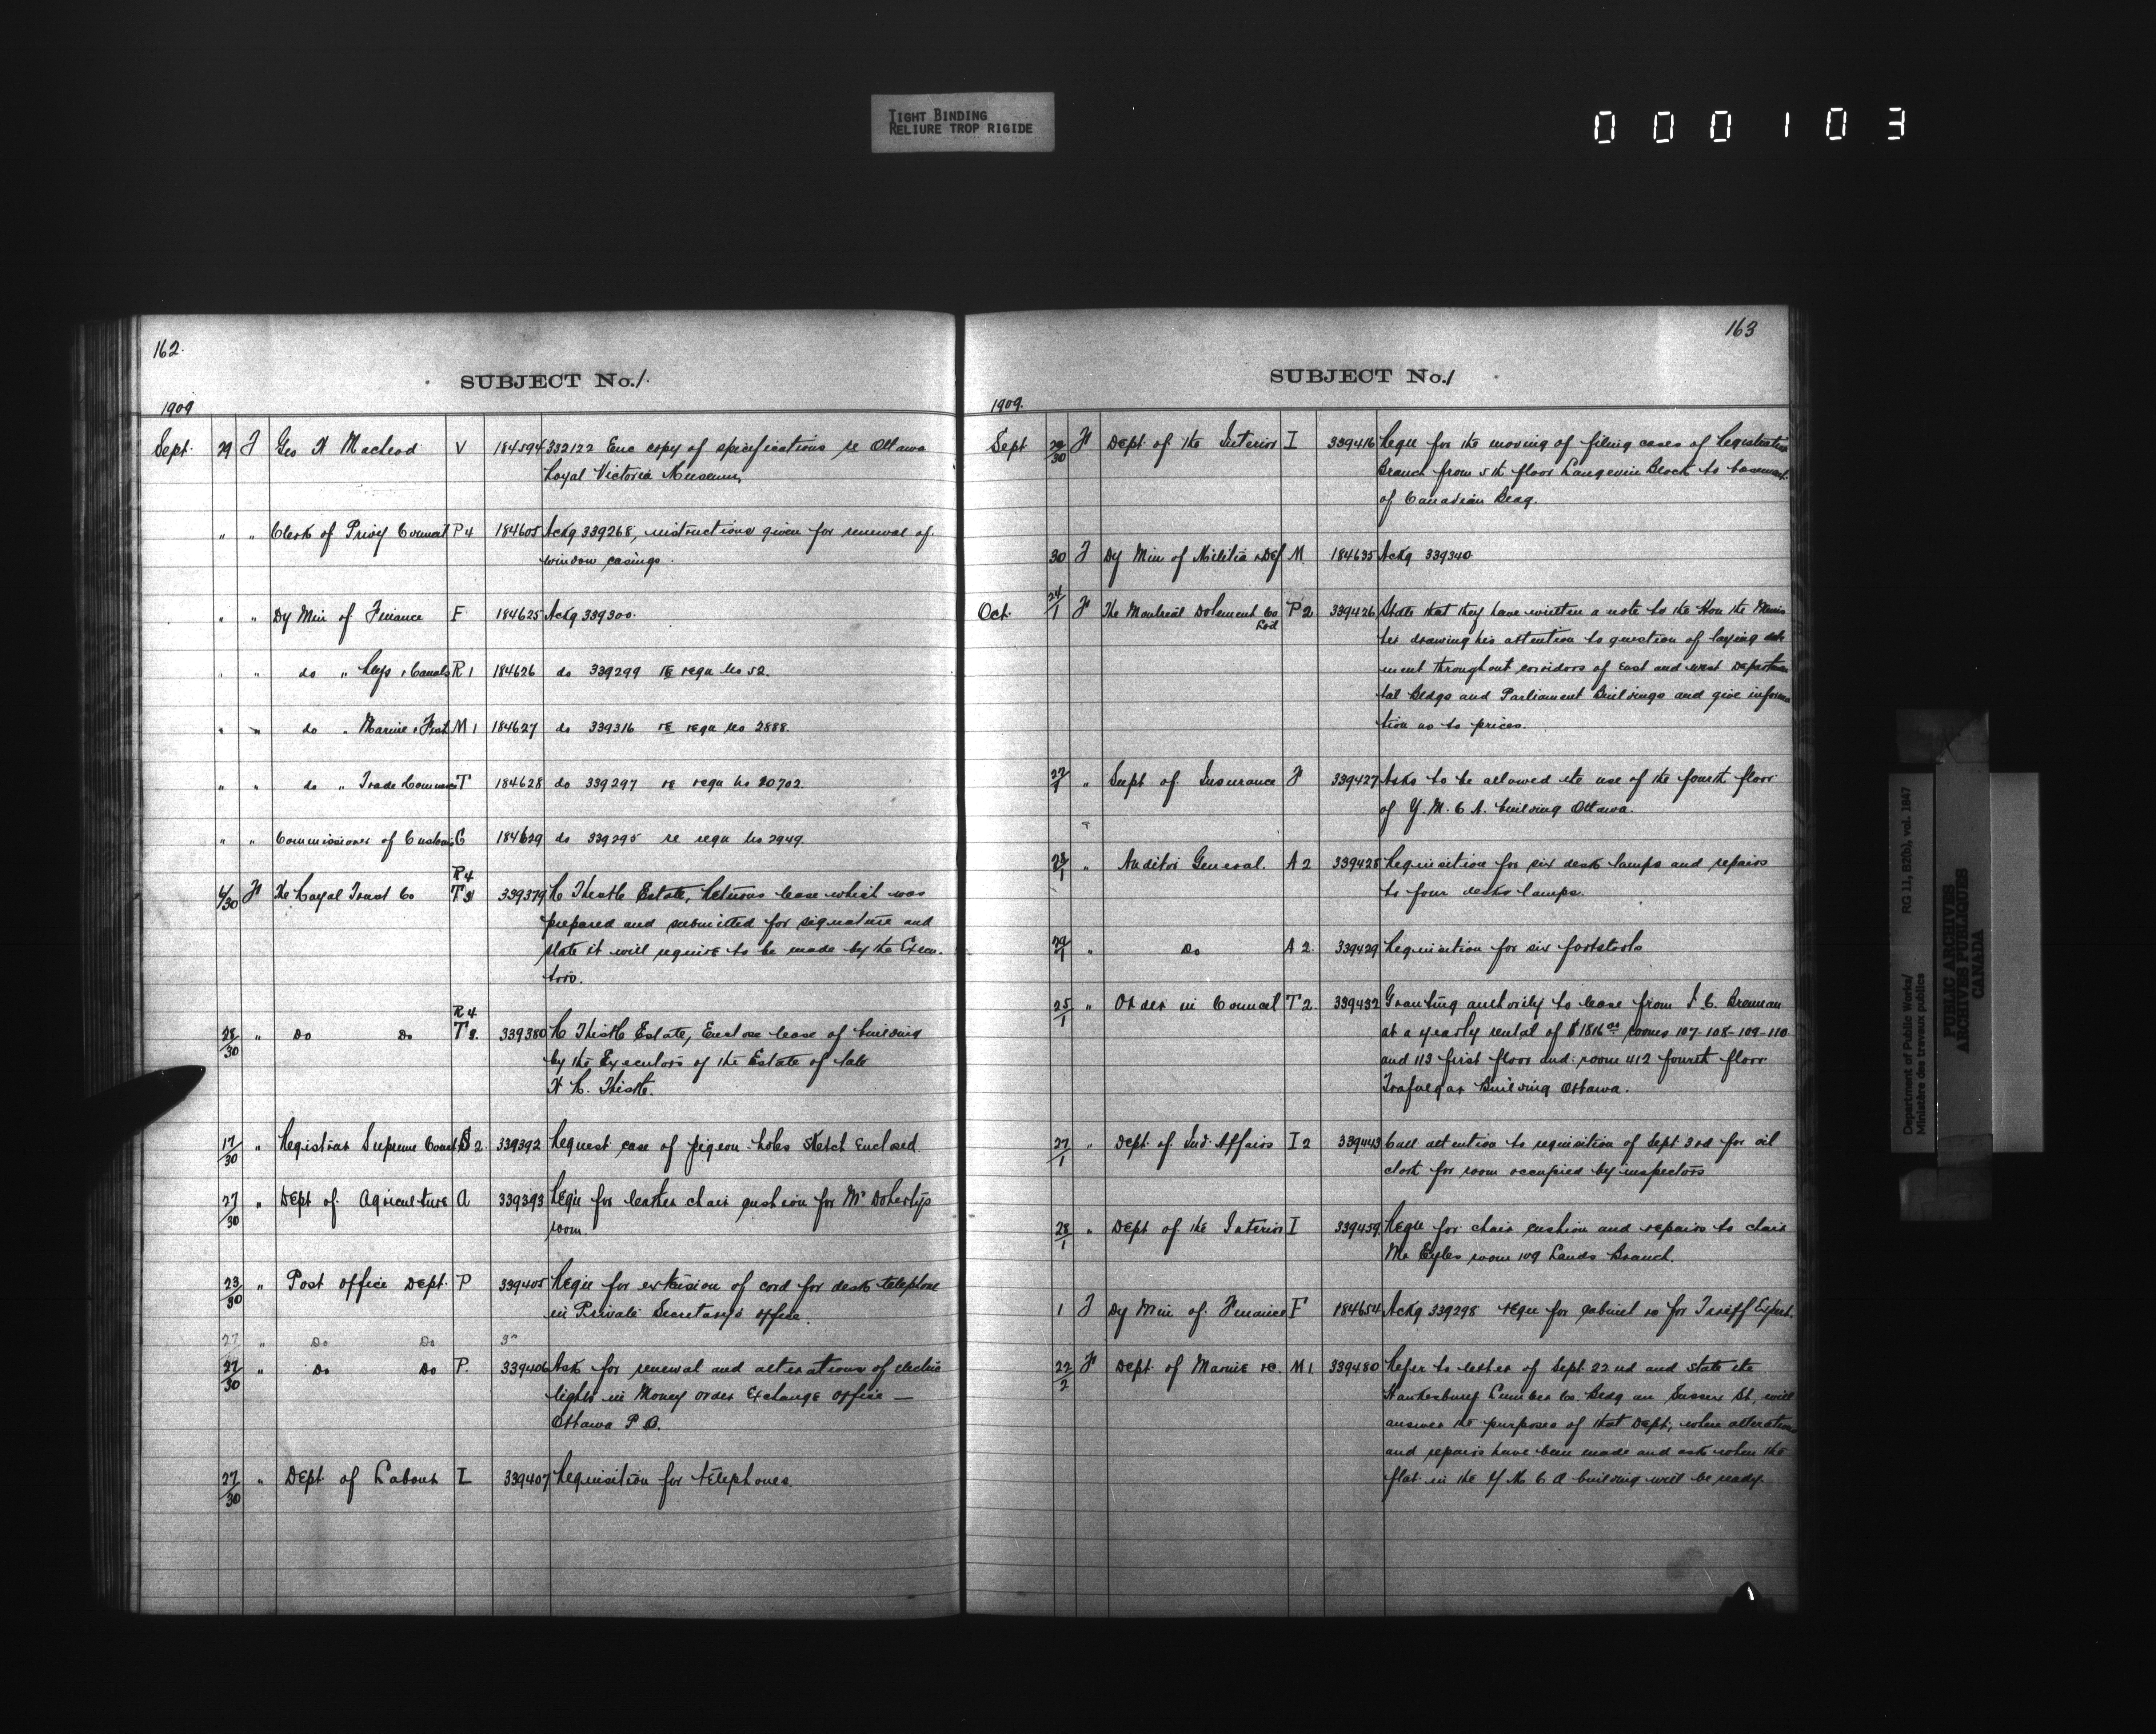 TIGHT BINDING
RELIURE TROP RIGIDE
000103
162.
SUBJECT No. 1.
1909
Sept. 29 T Geo H Macleod V 184594 332122 Enc copy of specifications re Ottawa
Royal Victoria Museum,
" " Clerk of Privy Council P4 184605 Ackg 339268, instructions given for renewal of
window casings.
" " Dy Min of Finance F 184625 Ackg 339300.
" " do " Rlys & Canals R1 184626 do 339299 re requ No 52.
" " do " Marine & Fish M1 184627 do 339316 re requ No 2888.
" " do " Trade & Commerce T 184628 do 339297 re requ No 20702.
" " Commissioner of Customs C 184629 do 339295 re requ No 2949.
R4
6/30 F The Royal Trust Co T3 339379 Thistle Estate, Returns lease which was
prepared and submitted for signature and
state it will require to be made by the Execu-
tors.
R4
28/30 " Do Do T3. 339380 Thistle Estate, Enclose lease of building
by the Executors of the Estate of late
Thistle.
17/30 " Registrar Supreme Court S2. 339392 Request case of pigeon-holes sketch enclosed.
27/30 " Dept of Agriculture A 339393 Requ for leather chair cushion for Mr Doherty's
room.
23/30 " Post office Dept. P 339405 Requ for extension of cord for desk telephone
in Private Secretary's office.
27 " Do Do 3
27/30 " Do Do P. 339406 Ask for renewal and alterations of electric
lights in Money Order Exchange Office —
Ottawa P.O.
27/30 " Dept of Labour L 339407 Requisition for telephones.
163
SUBJECT No. 1
1909.
Sept 29/30 F Dept. of the Interior I 339416 Requ for the moving of filing cases of Registration
Branch from 5th floor Langevin Block to basement
of Canadian Bldg.
30 T Dy Min of Militia & Def M. 184635 Ackg 339340
Oct. 24/1 F The Montreal Dolement Co P2 339426 State that they have written a note to the Hon the Minis
Ltd
ter drawing his attention to question of laying dole
ment throughout corridors of East and West Departmen
tal Bldgs and Parliament Buildings and give informa
tion as to prices.
27/1 " Supt of Insurance F 339427 Asks to be allowed the use of the fourth floor
of Y.M.C.A. building Ottawa.
28/1 " Auditor General. A2 339428 Requisition for six desk lamps and repairs
to four desks lamps.
29/1 " Do A2 339429 Requisition for six footstools
25/1 " Order in Council T2. 339432 Granting authority to lease from Brennan
at a yearly rental of $1816 rooms 107-108-109-110
and 113 first floor and room 412 fourth floor
Trafalgar Building Ottawa.
27/1 " Dept. of Ind. Affairs I2 339443 Call attention to requisition of Sept 3rd for oil
cloth for room occupied by inspectors
28/1 " Dept of the Interior I 339459 Requ for chair cushion and repairs to chair
Mr Eyles room 109 Lands Branch.
1 T Dy Min of Finance F 184654 Ackg 339298 requ for cabinet for Tariff Expert.
22/2 F Dept. of Marine &c. M1. 339480 Refer to letter of Sept. 22nd and state the
Hawkesbury Lumber Co. Bldg on Sussex St., will
answer the purposes of that Dept, when alterations
and repairs have been made and ask when the
flat in the Y M C A building will be ready.
Department of Public Works/ RG 11, B2(b), vol. 1847
Ministère des travaux publics
PUBLIC ARCHIVES
ARCHIVES PUBLIQUES
CANADA